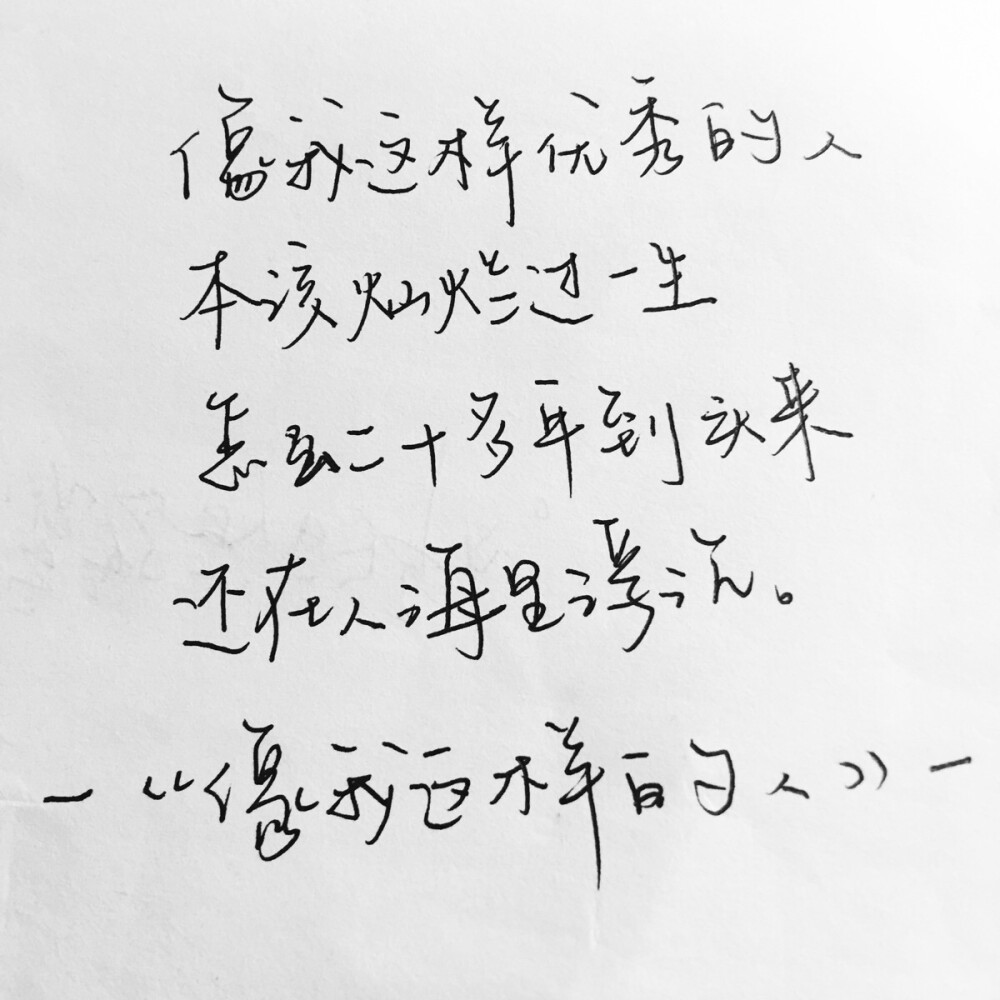 像我这样优秀的人
本该灿烂过一生
怎么二十多年到头来
还在人海里浮沉。
—《像我这样的人》—